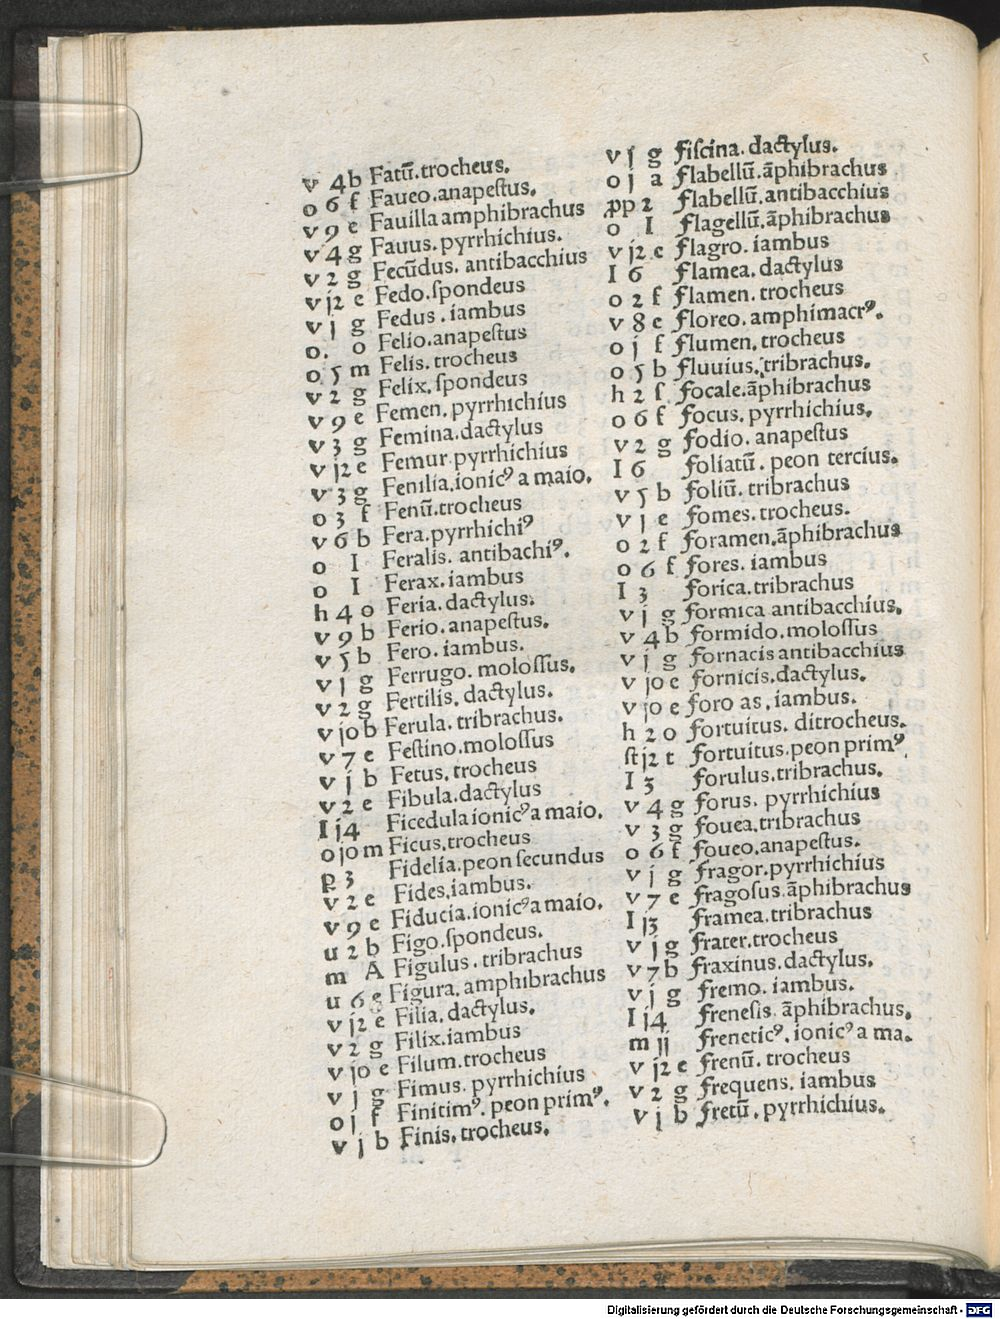 v 4b Fatū.trocheus.
o 6 f Faueo.anapestus.
v 9 e Fauilla amphibrachus
v 4 g Fauus. pyrrhichius.
v 2 g Fecūdus. antibacchius
v j2 e Fedo.spondeus
v j g Fedus. iambus
o. o Felio.anapestus
o 5 m Felis. trocheus
v 2 g Felix. spondeus
v 9 e Femen. pyrrhichius
v 3 g Femina.dactylus
v j2 e Femur pyrrhichius
v 3 g Fenilia.ionicꝰ a maio.
o 3 f Fenū.trocheus
v 6 b Fera.pyrrhichiꝰ
o I Feralis. antibachiꝰ.
o I Ferax. iambus
h 4 o Feria. dactylus.
v 9 b Ferio. anapestus.
v 5 b Fero. iambus.
v j g Ferrugo. molossus.
v 2 g Fertilis. dactylus.
v jo b Ferula. tribrachus.
v 7 e Festino.molossus
v j b Fetus. trocheus
v 2 e Fibula.dactylus
I j4 Ficedula ionicꝰ a maio.
o jo m Ficus.trocheus
p 3 Fidelia.peon secundus
v 2 e Fides.iambus.
v 9 e Fiducia.ionicꝰ a maio.
u 2 b Figo.spondeus.
m A Figulus. tribrachus
u 6 g Figura. amphibrachus
v j2 e Filia. dactylus.
v 2 g Filix.iambus
v jo e Filum.trocheus
v j g Fimus. pyrrhichius
o j f Finitimꝰ. peon primꝰ.
v j b Finis. trocheus.
v j g Fiscina. dactylus.
o j a Flabellū.āphibrachus
ꝓp 2 Flabellū.antibacchius
o I Flagellū.āphibrachus
v j2 e Flagro. iambus
I 6 Flamea. dactylus
o 2 f Flamen. trocheus
v 8 e Floreo. amphimacrꝰ.
o j f Flumen. trocheus
o 5 b Fluuius. tribrachus.
h 2 f Focale.āphibrachus
o 6 f Focus. pyrrhichius.
v 2 g Fodio. anapestus
I 6 Foliatū. peon tercius.
v 5 b Foliū. tribrachus
v j e Fomes. trocheus.
o 2 f Foramen.āphibrachus
o 6 f Fores. iambus
I 3 Forica.tribrachus
v j g Formica antibacchius.
v 4 b Formido. molossus
v j g Fornacis antibacchius
v jo e Fornicis.dactylus.
v jo e Foro as. iambus.
h 2 o Fortuitus. ditrocheus.
st j2 t Fortuitus.peon primꝰ.
I 3 Forulus.tribrachus.
v 4 g Forus. pyrrhichius
v 3 g Fouea.tribrachus
o 6 f Foueo.anapestus.
v j g Fragor.pyrrhichius
v 7 e Fragosus.āphibrachus
I j3 Framea.tribrachus
v j g Frater.trocheus
v 7 b Fraxinus.dactylus.
v j g Fremo. iambus.
I j4 Frenesis. āphibrachus.
m jj Freneticꝰ. ionicꝰ a ma.
v j2 e Frenū. trocheus
v 2 g Frequens. iambus
v j b Fretū. pyrrhichius.
Digitalisierung gefördert durch die Deutsche Forschungsgemeinschaft - DFG